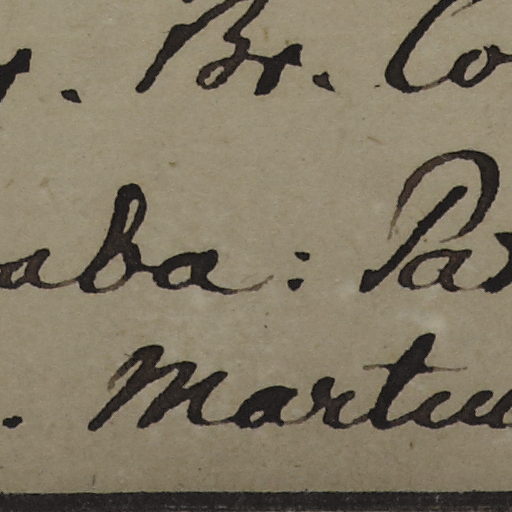 . Br. Co
aba: Par
. Martiu